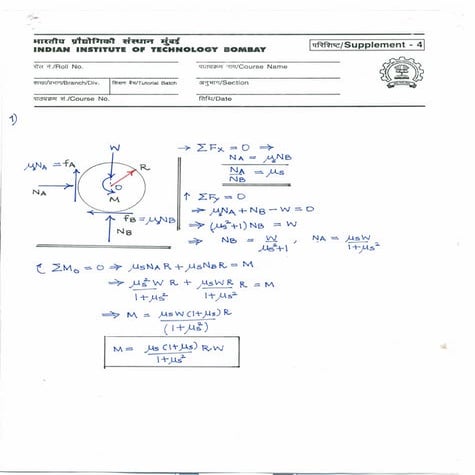 भारतीय प्रौद्योगिकी संस्थान मुंबई
INDIAN INSTITUTE OF TECHNOLOGY BOMBAY
परिशिष्ट/Supplement - 4
रोल नं./Roll No.
पाठ्यक्रम नाम/Course Name
शाखा/प्रभाग/Branch/Div.
शिक्षण बैच/Tutorial Batch
अनुभाग/Section
पाठ्यक्रम सं./Course No.
तिथि/Date
1)
W
R
μsNA = fA
NA
O
M
fB = μsNB
NB
→ ΣFx = 0 ⇒
NA = μsNB
NA/NB = μs
↑ ΣFy = 0
⇒ μsNA + NB - W = 0
⇒ (μs²+1) NB = W
⇒ NB = W/μs²+1, NA = μsW/1+μs²
ΣMo = 0 ⇒ μsNAR + μsNBR = M
⇒ μs²W/1+μs² R + μsWR/1+μs² = M
⇒ M = μsW(1+μs)R/(1+μs²)
M = μs(1+μs)/1+μs² RW